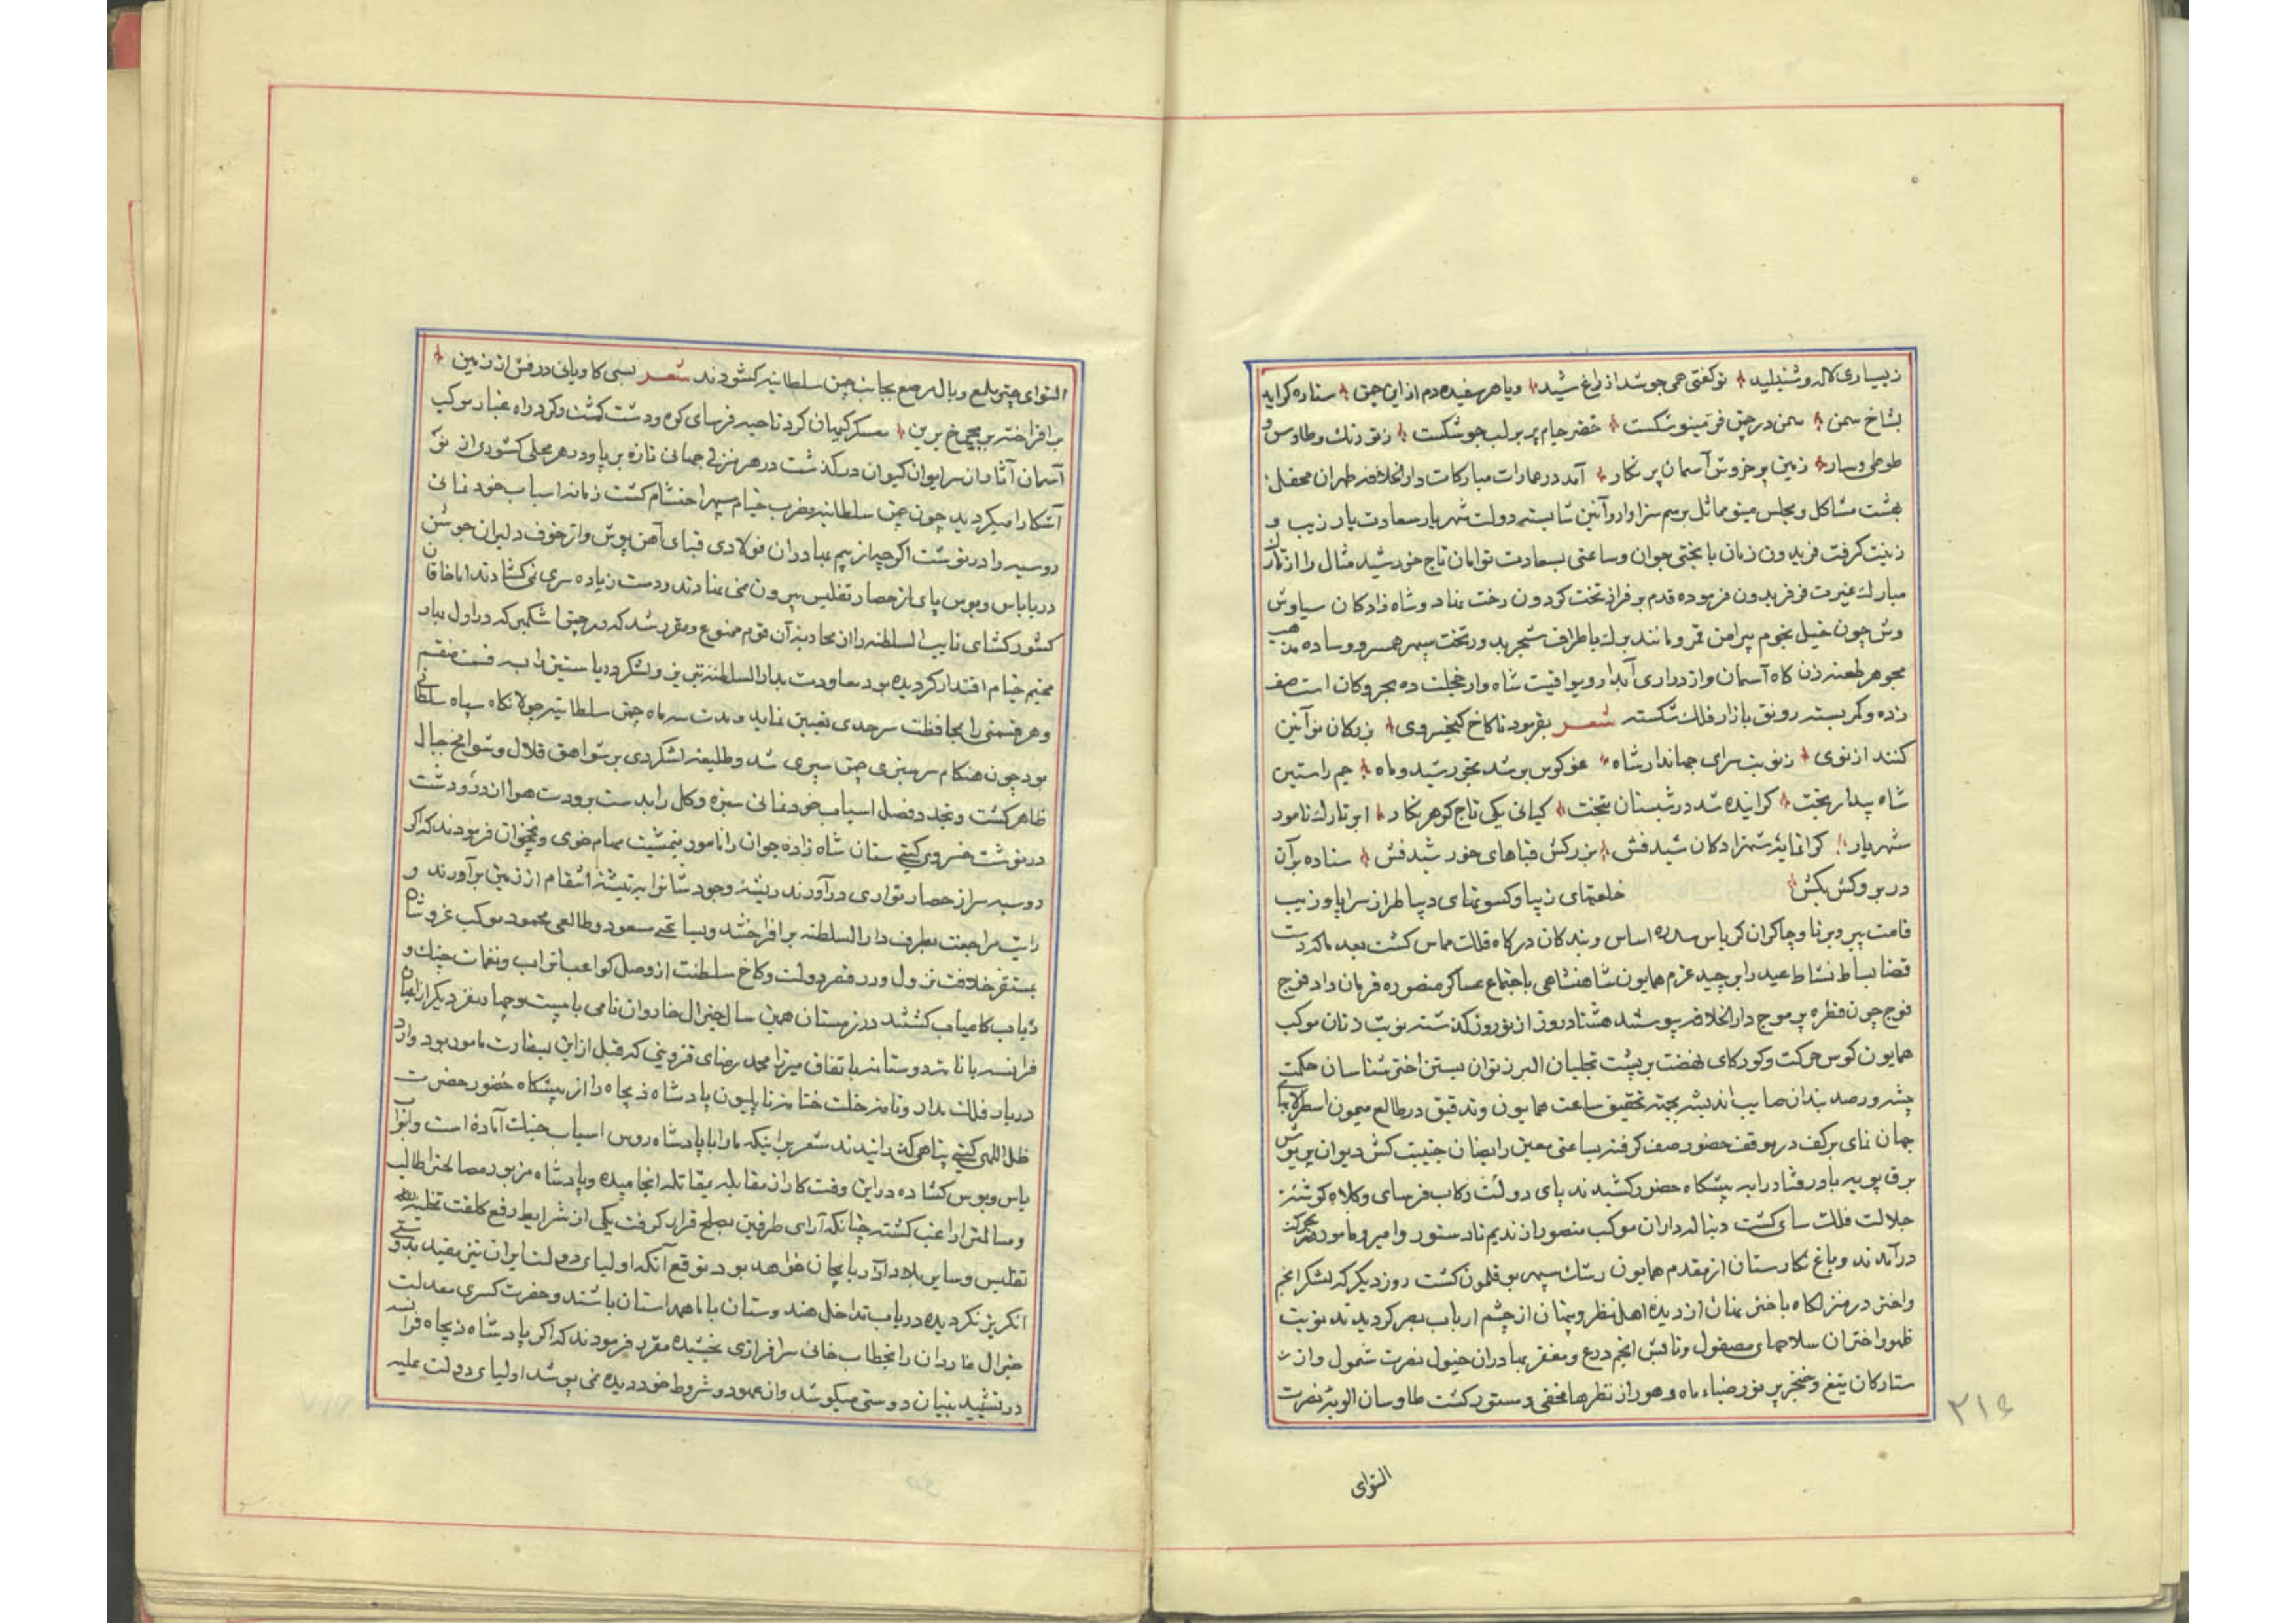 ز بسیاری لاله و شنبلید تو گفتی همی جوشد از راغ شید و یا هر سفیده دم از این چمن ستاره گراید
بشاخ سمن سمن در چمن فر مینو شکست خضر جام پر بر لب جو شکست
طوطی و سار زمین پر خروش آسمان پر نگار آمد در عمارات مبارکات دارالخلافه طهران محفل
بهشت مشاکل و مجلس مینو مماثل برسم سزاوار و آئین شایسته دولت شهریار سعادت یار زیب و
زینت گرفت فریدون زمان با بختی جوان و ساعتی بسعادت توامان تاج خورشید مثال را از تارک
مبارک غیرت فر فریدون فرموده قدم بر فراز تخت گردون رخت نهاد و شاه زادکان سیاوش
وش چون خیل نجوم پیرامن قمر و مانند برک باطراف شجر بهر ور تخت سپهر همسر و وساده مذهب
مجوهر طعنه زن کاه آسمان و از دراری آبدار و یواقیت شاه وار خجلت ده بحر و کان است صف
زده و کمر بسته رونق بازار فلک شکسته شعر بفرمود تا کاخ کیخسروی بزرکان نو آئین
کنند از نوی ز نوبت سرای جهاندار شاه غو کوس بر شد بخورشید و ماه جم راستین
شاه بیدار بخت گرانیده شد در شبستان تخت کیانی یکی تاج گوهر نگار ابر تارک نامور
شهریار گرانمایه شهزادکان شیدفش بزرکش قباهای خورشیدفش ستاده بر آن
در بر و کش بکش خلعتهای زیبا و کسوتهای دیبا طراز سراپا و زیب
قامت پیر و برنا و چاکران کریاس سدره اساس و بندکان درکاه فلک مماس کشت بعد ما که دست
قضا بساط نشاط عید را بر چید عزم همایون شاهنشاهی باجتماع عساکر منصوره فرمان داد فوج
فوج چون قطره بر موج دارالخلافه پیوستند هشتاد روز از نوروز گذشته نوبت زنان موکب
همایون کوس حرکت و کورکای نهضت بر پشت تجلیان البرز توان بستن اختر شناسان حکمت
پیشه و رصد بندان صایب اندیشه بجهته تحقیق ساعت همایون و تدقیق در طالع میمون اسطرلابهای
جهان نمای بر کف در موقف حضور صف گرفته بساعتی معین رایضان جنیبت کش دیوان پریوش
برق پویه باد رفتار را به پیشگاه حضور کشیدند پای دولت رکاب فرسای و کلاه گوشه
جلالت فلک سای کشت دنباله داران موکب منصور از ندیم تا دستور و امیر و مامور بحرکت
در آمدند و باغ نگارستان از مقدم همایون رشک سپهر بوقلمون کشت روز دیگر که لشکر انجم
و اختر در منزلگاه باختر نهان از دیده اهل نظر و پنهان از چشم ارباب بصر کردیدند نوبت
ظهور اختران سلاحهای مصقول و تابش انجم درع و مغفر بهادران خیول نصرت شمول و از
ستارکان تیغ و خنجر پر نور ضیاء ماه و هور از نظرها مخفی و مستور کشت طاوسان الویه نصرت
التوای
۲۱۶
التوای چتر ملمع و بال مرصع بجانب چمن سلطانیه کشودند شعر بسی کاویانی درفش از زمین
بر افراخته بر بچرخ برین معسکر کیهان کرد ناحیه فرسای کوه و دشت کشت و کرد راه غبار موکب
آسمان آثار از سر ایوان کیوان در گذشت در هر منزلی جهانی تازه بر پا و در هر محلی کشوری از نو
آشکارا میگردید چون چمن سلطانیه مضرب خیام سپهر احتشام کشت زمانه اسباب خود نمائی
روسیه را در نوشت اگرچه از بیم بهادران فولادی قبای آهن پوش و از خوف دلیران جوشن
در بابا س و بوس پای از حصار تفلیس بیرون نمی نهادند و دست زیاده سری نمی کشادند اما خاقان
کشور کشای نایب السلطنه را از محاربه آن قوم ممنوع و مقرر شد که در چمن اشکنبر که در اول بهار
مخیم خیام اقتدار کردیده بود معاودت بدارالسلطنه تبریز و لشکر دریا ستیز را به قسمت منقسم
و هر قسمتی را بمحافظت سرحدی تعیین نماید و مدت سه ماه چمن سلطانیه جولانگاه سپاه سلطانی
بود چون هنگام سرسبزی چمن سپری شد و طلیعه لشکر دی بر شواهق قلال و شوامخ جبال
ظاهر کشت و تجدد فصل اسباب خود نمائی سبزه و کل را بدست برودت هوا از در و دشت
در نوشت خسرو کیتی ستان شاه زاده جوان را مامور بتمشیت مهام خوی و نخجوان فرمودند که اگر
روسیه سر از حصار تواری در آورند ریشه وجودشانرا به تیشه انتقام از زمین بر آورند و
رایت مراجعت بطرف دارالسلطنه بر افراخته و بساعتی مسعود و طالعی محمود موکب غرو شان
بمستقر خلافت نزول و در قصر دولت و کاخ سلطنت از وصل کواعب اتراب و نغمات چنک و
رباب کامیاب کشتند در زمستان همین سال جنرال غاردان نامی با بیست و چهار نفر دیگر از اعیان
فرانسه با نامه دوستانه باتفاق میرزا محمد رضای قزوینی که قبل از این بسفارت مامور بود وارد
دربار فلک مدار و نامه خلت ختامه ناپلیون پادشاه ذیجاه را از پیشگاه حضور حضرت
ظل اللهی کیتی پناهی گذرانیدند مشعر بر اینکه ما را با پادشاه روس اسباب جنک آماده است و ابواب
باس و بوس کشاده در این وقت کار از مقابله بمقاتله انجامیده و پادشاه مزبور مصالحه را طالب
و مسالمت را راغب کشته چنانکه آرای طرفین بصلح قرار گرفت یکی از شرایط رفع کلفت تخلیه
تفلیس و سایر بلاد آذربایجان خواهد بود توقع آنکه اولیای دولت ایران نیز مقید بدوستی
انگریز نگردیده در باب تداخل هندوستان با ما همداستان باشند و حضرت کسری معدلت
جنرال غاردان را بخطاب خانی سرافرازی بخشیده مقرر فرمودند که اگر پادشاه ذیجاه فرانسه
در تشیید بنیان دوستی میکوشد و از عهود و شروط خود دیده نمی پوشد اولیای دولت علیه